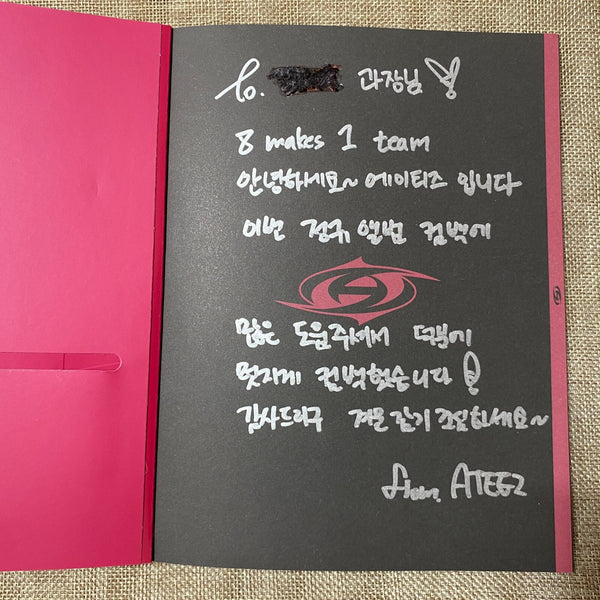 To. 과장님
8 makes 1 team
안녕하세요~ 에이티즈 입니다
이번 정규 앨범 컴백에
많은 도움주셔서 덕분에
멋지게 컴백했습니다
감사드리구 겨울 감기 조심하세요~
from. ATEEZ